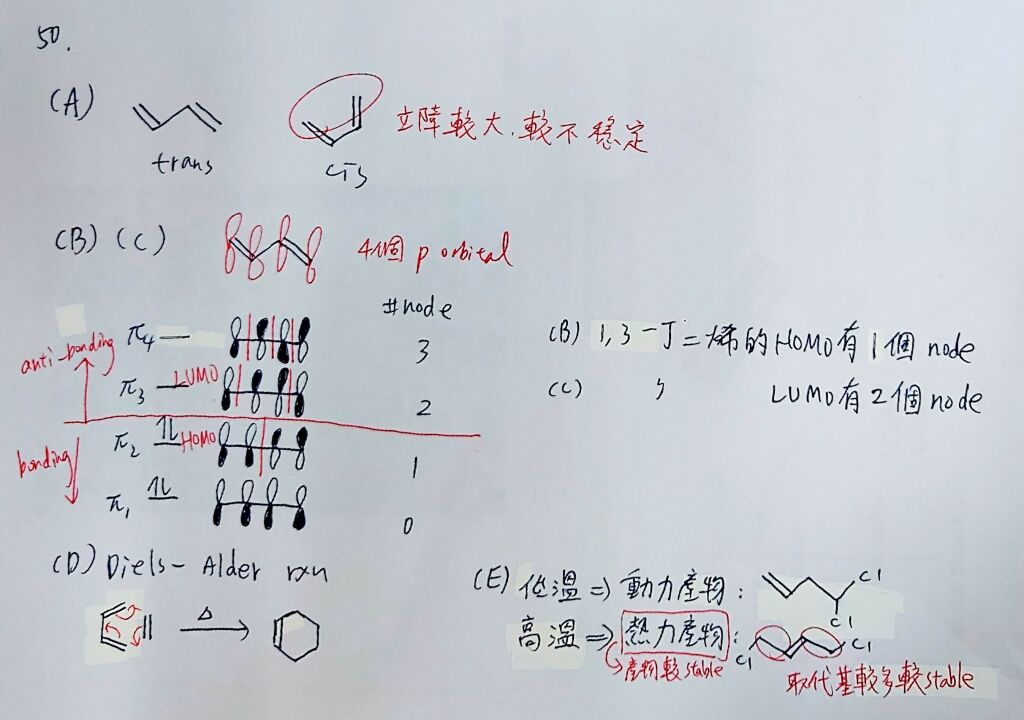 50.
(A)
trans
cis
立障較大,較不穩定
(B)(C)
4個 p orbital
#node
anti-bonding
π4
3
π3 LUMO
2
π2 HOMO
1
bonding
π1
0
(B) 1,3-丁二烯的HOMO有1個node
(C) 〃 LUMO有2個node
(D) Diels-Alder rxn
Δ
(E) 低溫⇒動力產物: Cl
Cl
高溫⇒熱力產物: Cl Cl
產物較stable
取代基較多較stable